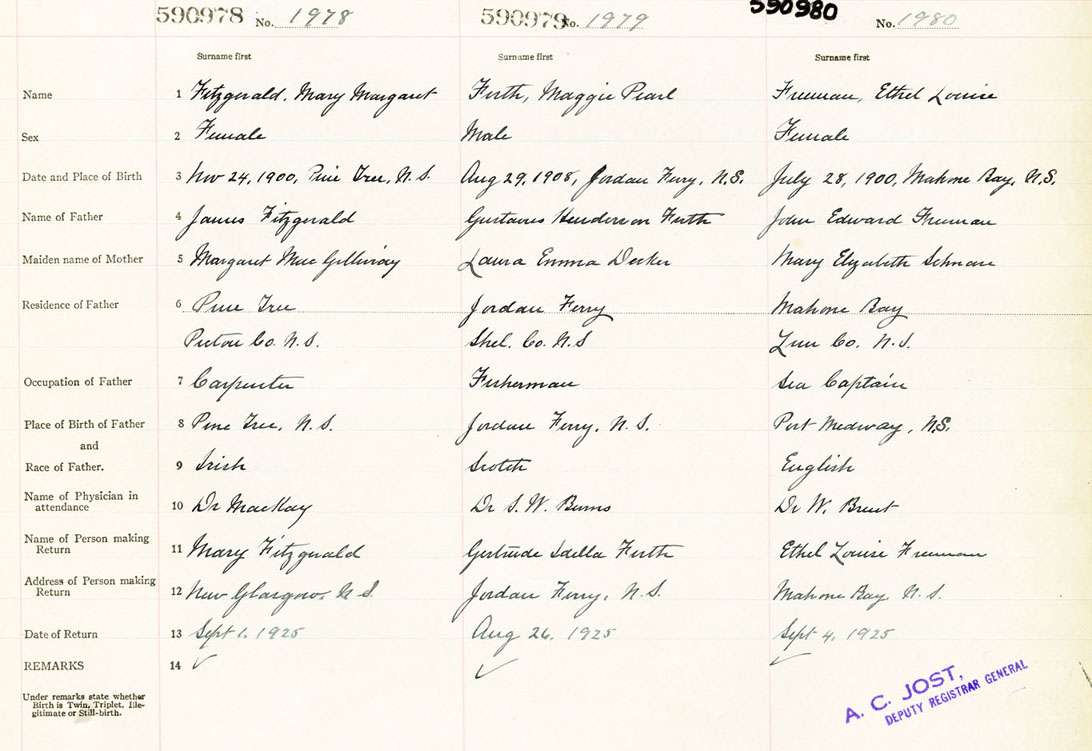 590978 No. 1978 590979 No. 1979 590980 No. 1980
Surname first Surname first Surname first
Name 1 Fitzgerald, Mary Margaret Firth, Maggie Pearl Freeman, Ethel Louise
Sex 2 Female Male Female
Date and Place of Birth 3 Nov 24, 1900, Pine Tree, N.S. Aug 29, 1908, Jordan Ferry, N.S. July 28, 1900, Mahone Bay, N.S.
Name of Father 4 James Fitzgerald Gustavus Henderson Firth John Edward Freeman
Maiden name of Mother 5 Margaret MacGillivray Laura Emma Decker Mary Elizabeth Schnare
Residence of Father 6 Pine Tree Jordan Ferry Mahone Bay
Pictou Co. N.S. Shel. Co. N.S Lun Co. N.S.
Occupation of Father 7 Carpenter Fisherman Sea Captain
Place of Birth of Father 8 Pine Tree, N.S. Jordan Ferry, N.S. Port Medway, N.S.
and
Race of Father. 9 Irish Scotch English
Name of Physician in
attendance 10 Dr MacKay Dr S. W. Burns Dr W.
Name of Person making
Return 11 Mary Fitzgerald Gertrude Idella Firth Ethel Louise Freeman
Address of Person making
Return 12 New Glasgow, N.S. Jordan Ferry, N.S. Mahone Bay, N.S.
Date of Return 13 Sept 1, 1925 Aug 26, 1925 Sept 4, 1925
REMARKS 14 ✓ ✓ ✓
Under remarks state whether
Birth is Twin, Triplet, Ille-
gitimate or Still-birth.
A. C. JOST,
DEPUTY REGISTRAR GENERAL